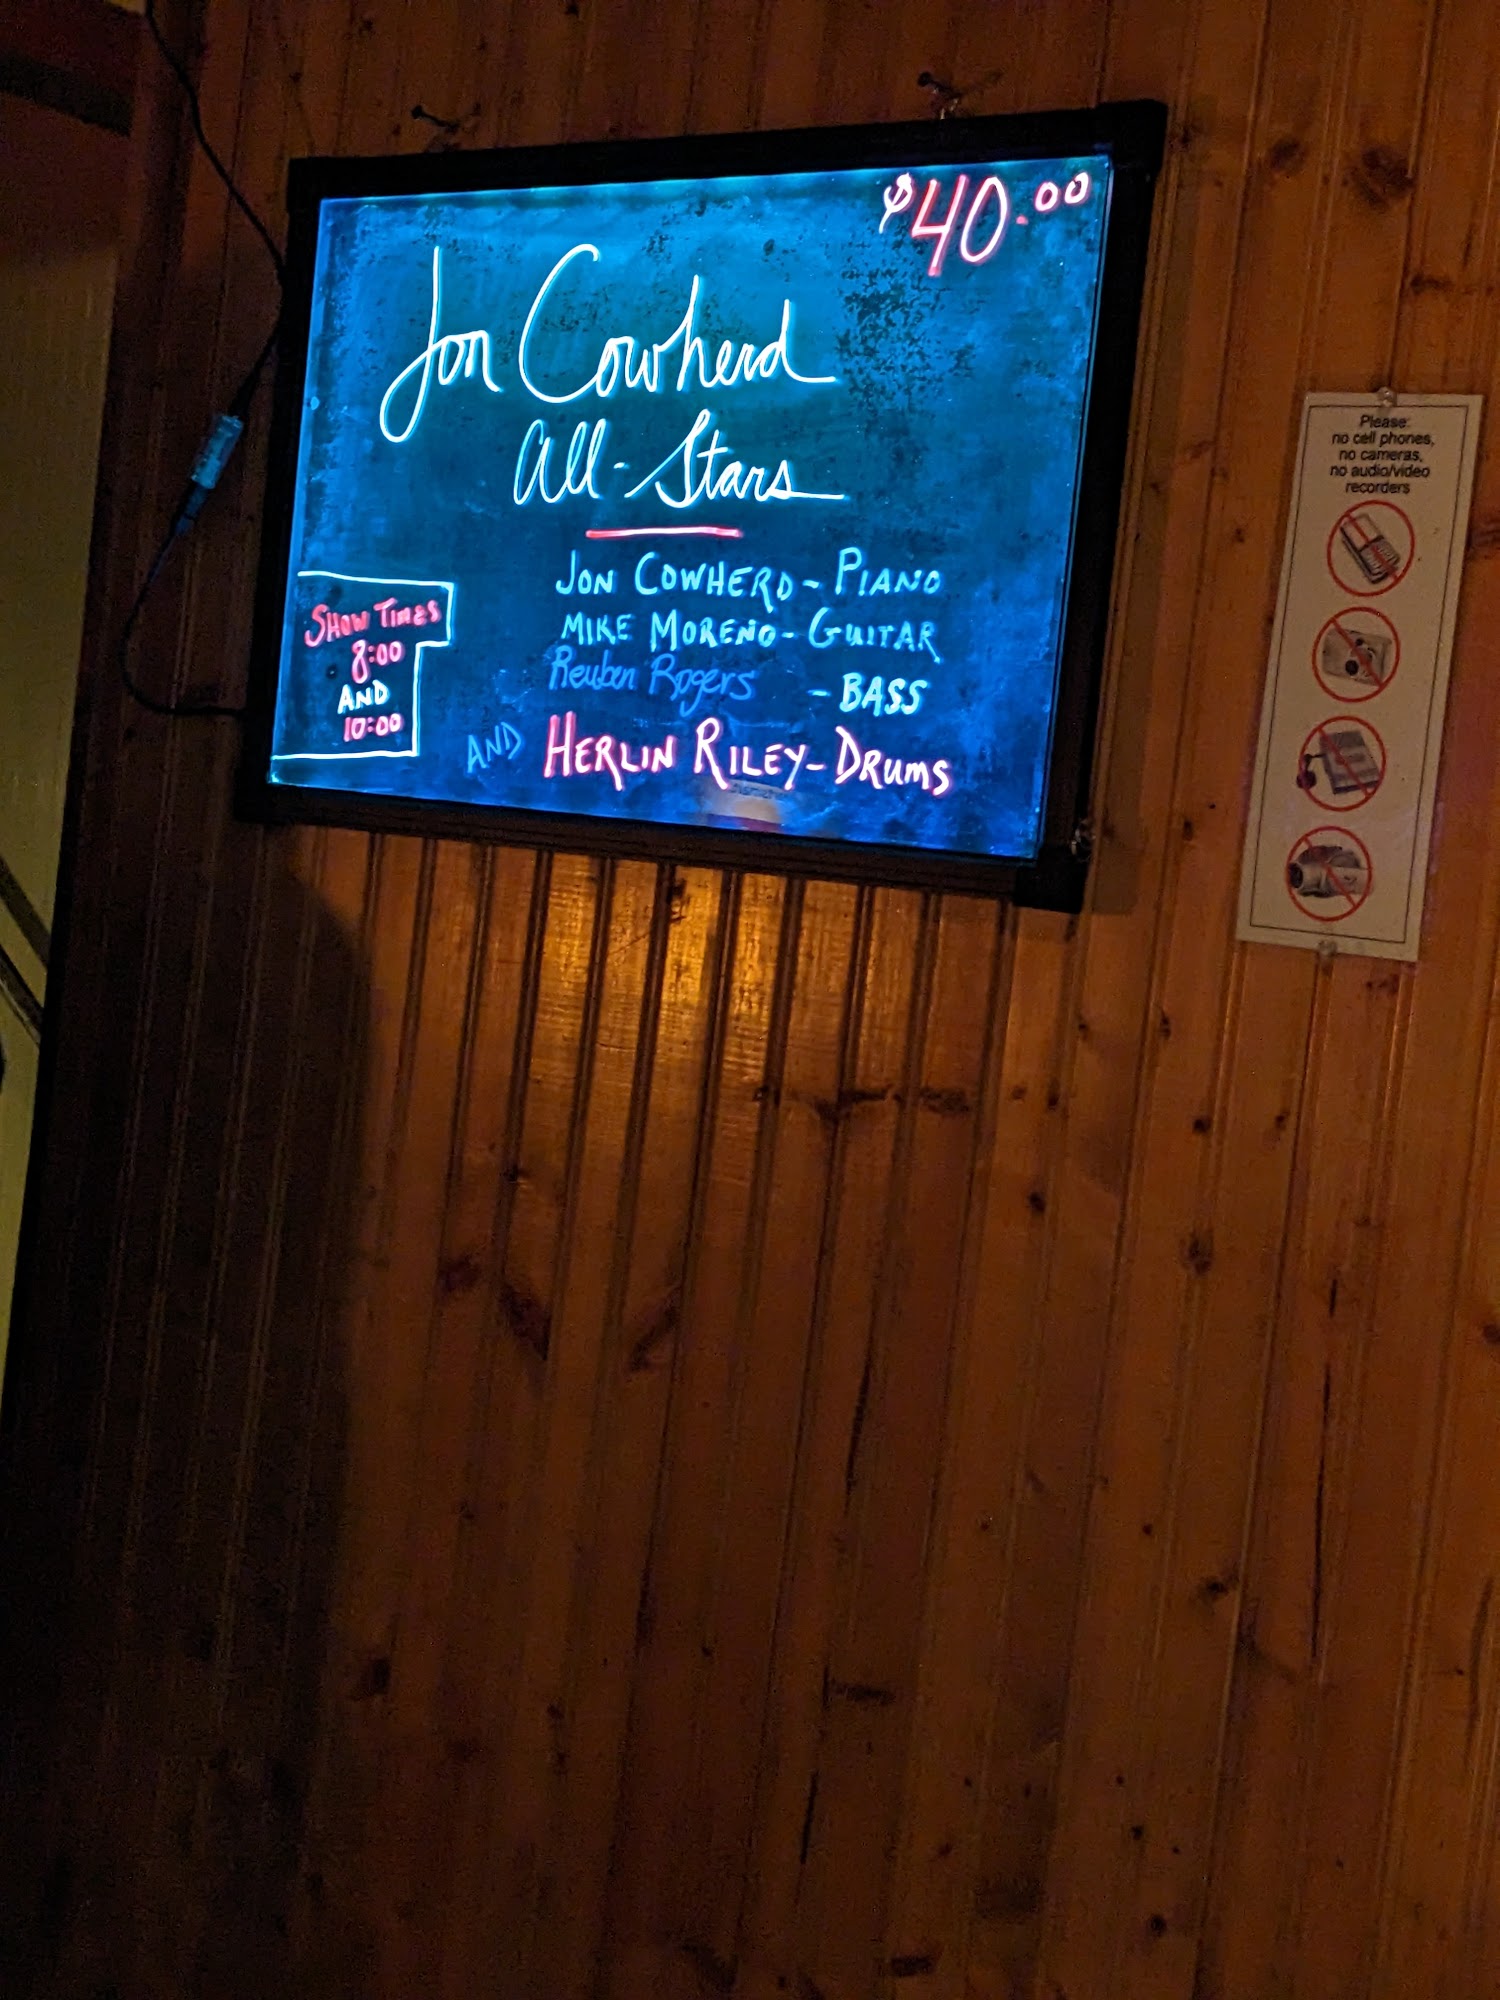 $40.00
Jon Cowherd
All-Stars
Jon Cowherd - Piano
Mike Moreno - Guitar
Reuben Rogers - Bass
and Herlin Riley - Drums
Show Times
8:00
and
10:00
Please:
no cell phones,
no cameras,
no audio/video
recorders